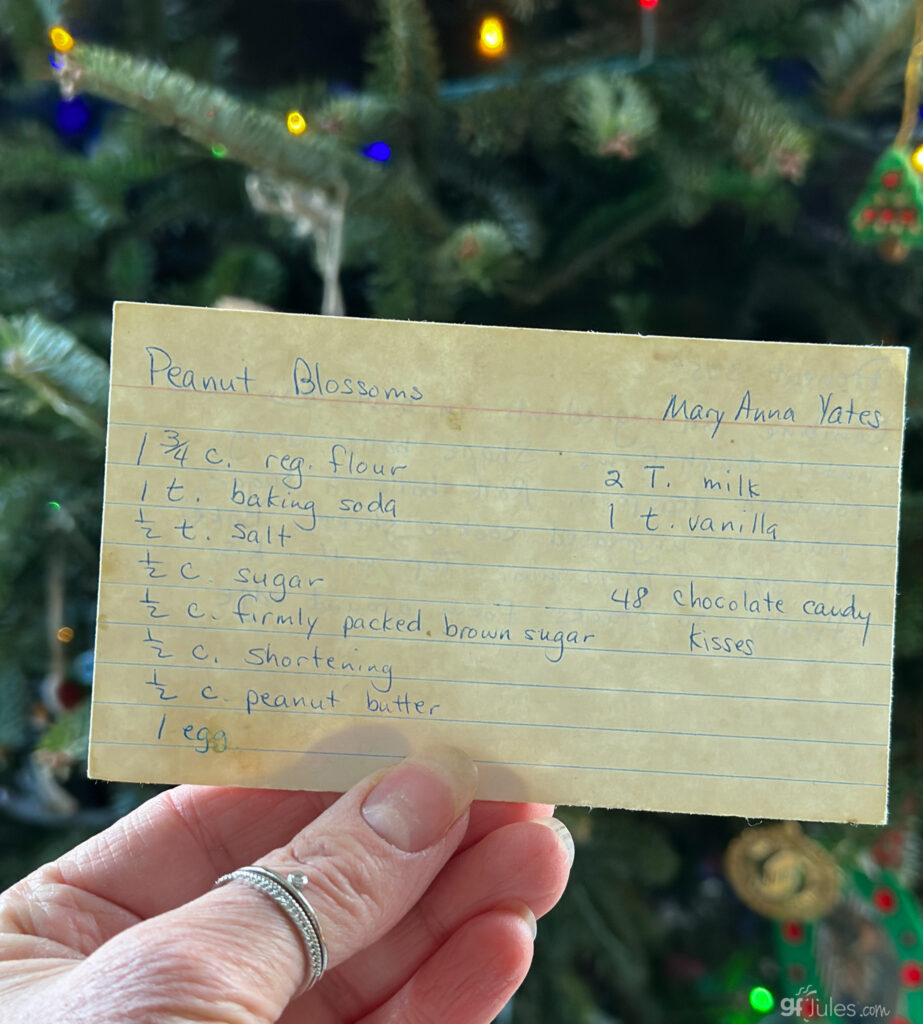 Peanut Blossoms
Mary Anna Yates
1 3/4 c. reg. flour
1 t. baking soda
1/2 t. salt
1/2 c. sugar
1/2 c. firmly packed brown sugar
1/2 c. shortening
1/2 c. peanut butter
1 egg
2 T. milk
1 t. vanilla
48 chocolate candy
kisses
gfJules.com